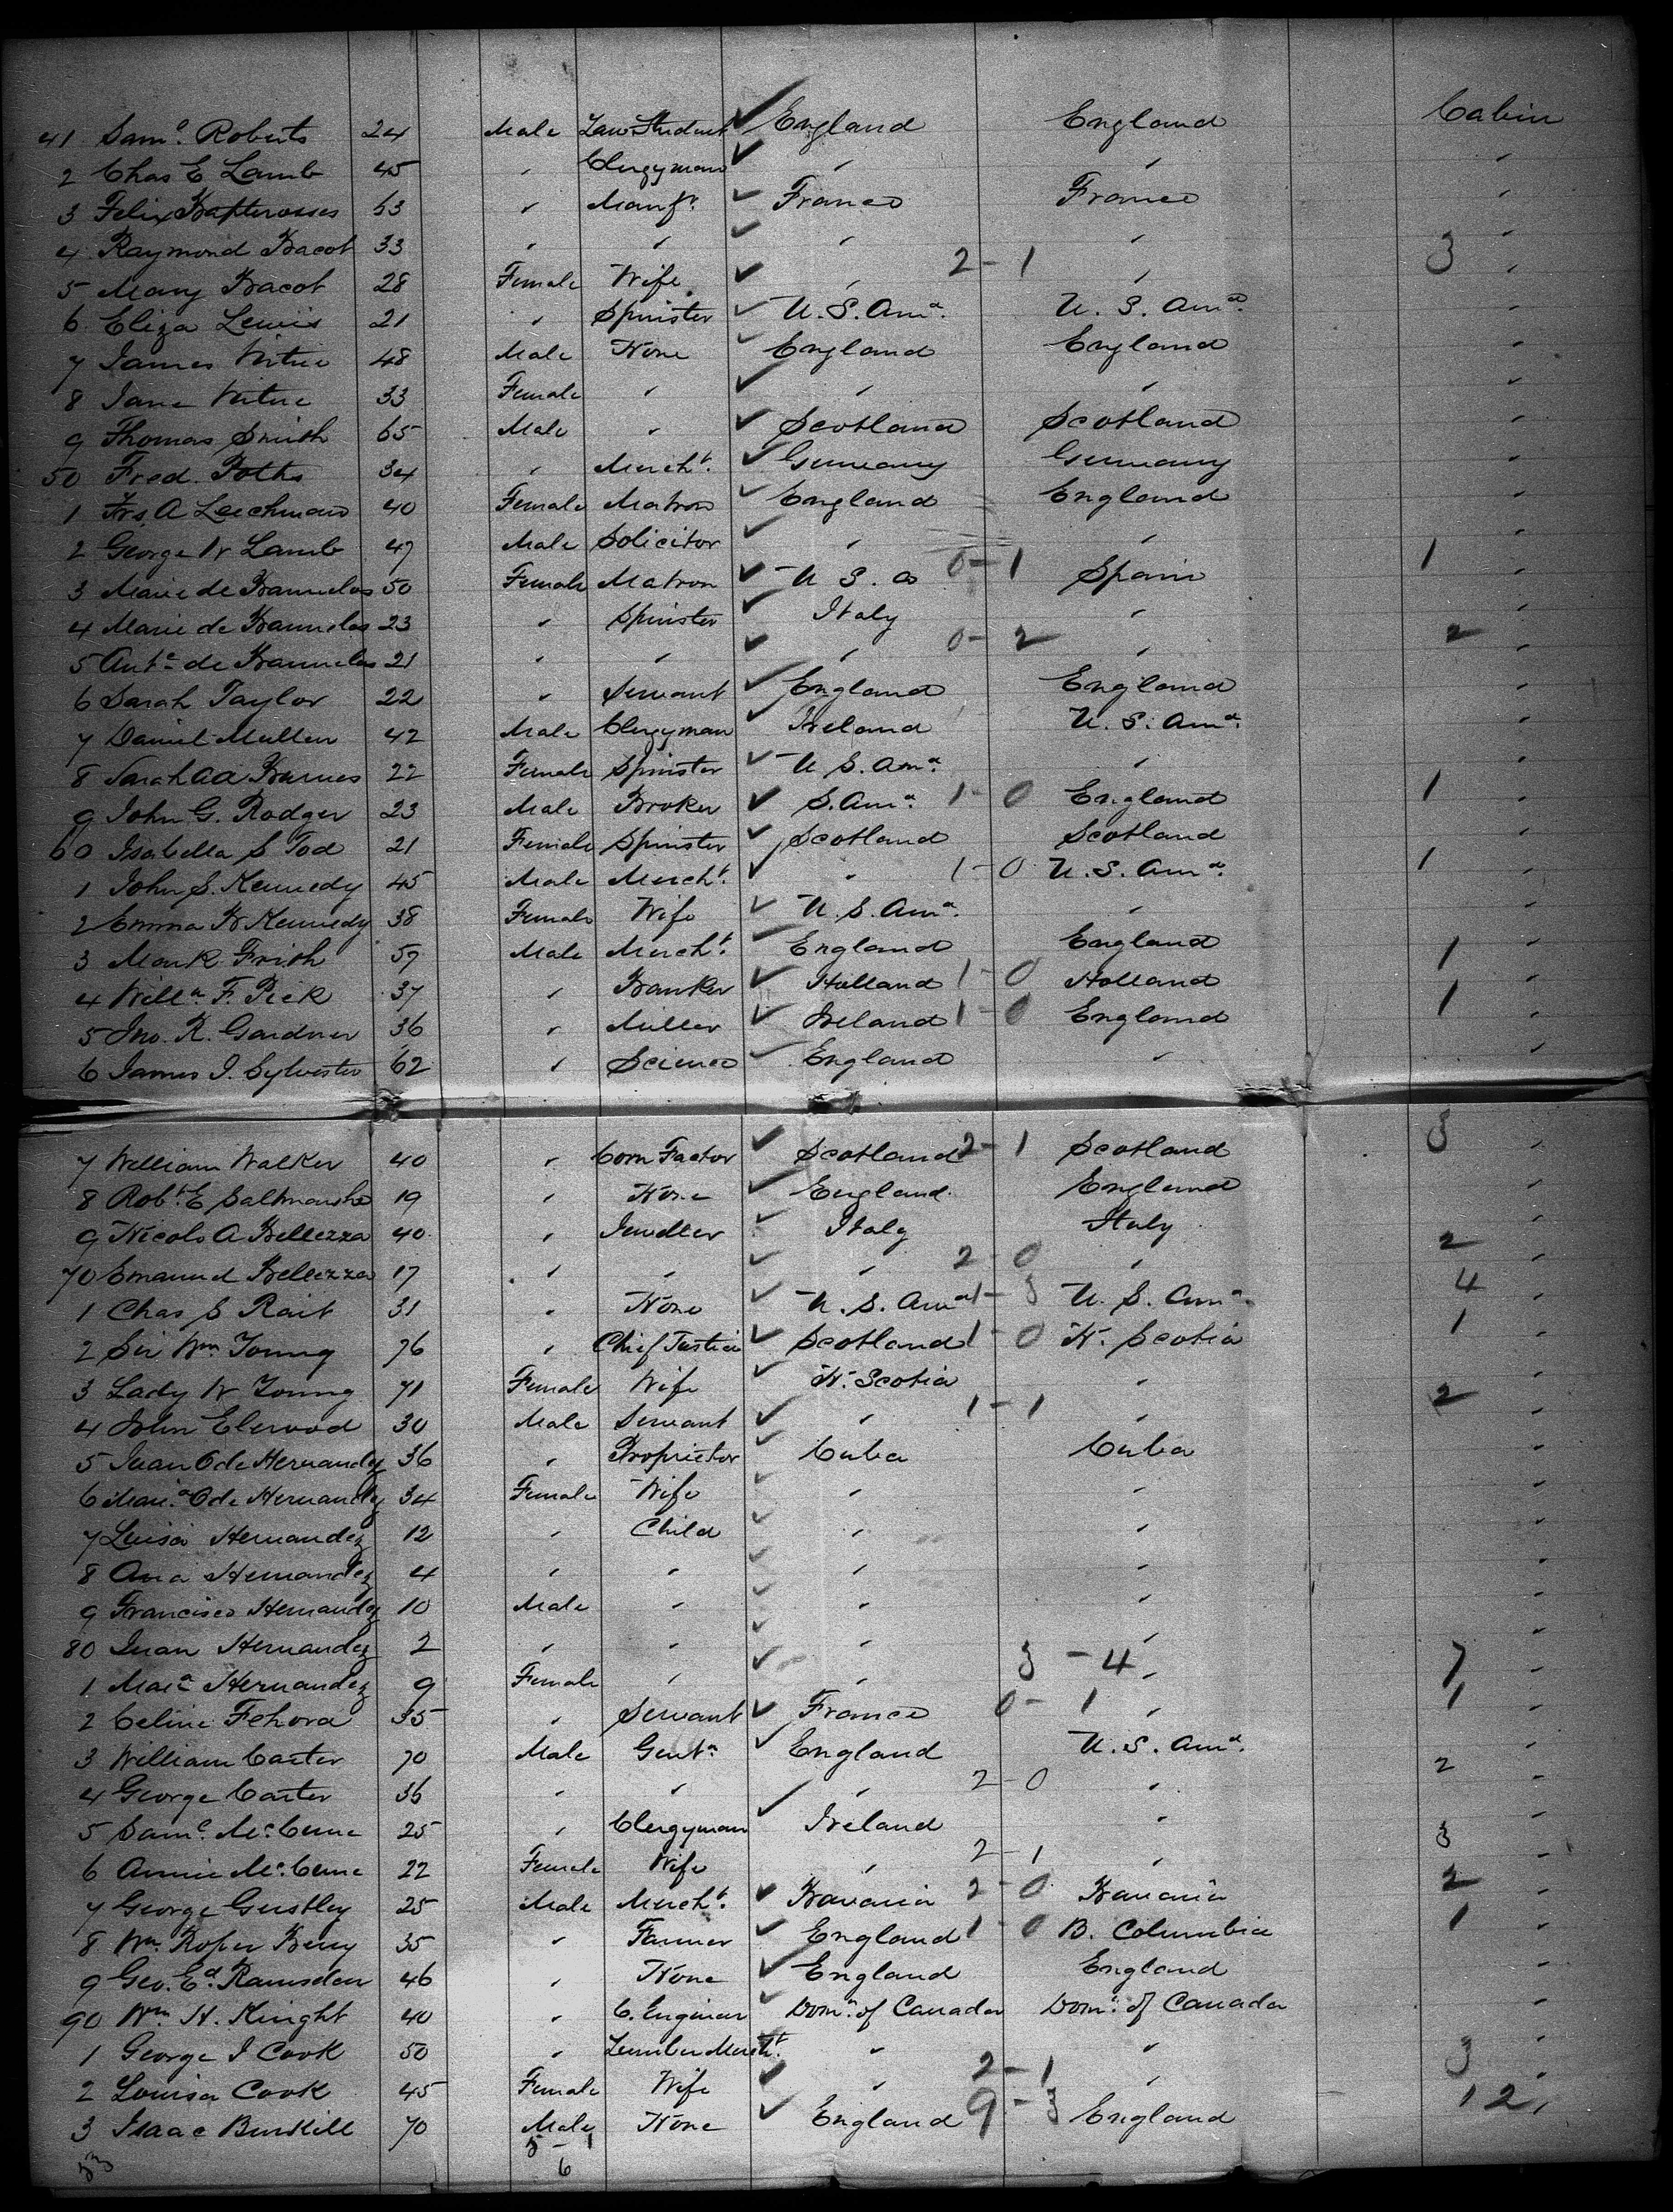 41 Saml. Roberts 24 Male Law Student England England Cabin
2 Chas E Lamb 45 " Clergyman " " "
3 Felix Bapterosses 63 " Manfr. France France "
4 Raymond Bacot 33 " " " " "
5 Mary Bacot 28 Female Wife " 2-1 " 3 "
6 Eliza Lewis 21 " Spinster U. S. Ama. U. S. Ama. "
7 James Virtue 48 Male None England England "
8 Jane Virtue 33 Female " " " "
9 Thomas Smith 65 Male " Scotland Scotland "
50 Fred. Poths 34 " Mercht. Germany Germany "
1 Frs. A Leechman 40 Female Matron England England "
2 George W Lamb 47 Male Solicitor " " "
3 Marie de Banuelos 50 Female Matron U S. a 0-1 Spain 1 "
4 Marie de Banuelos 23 " Spinster Italy " "
5 Anta de Banuelos 21 " " " 0-2 " 2 "
6 Sarah Taylor 22 " Servant England England "
7 Daniel Mullen 42 Male Clergyman Ireland U. S. Ama. "
8 Sarah aa Barnes 22 Female Spinster U S. Ama. " "
9 John G. Rodger 23 Male Broker S. Ama. 1-0 England 1 "
60 Isabella S Tod 21 Female Spinster Scotland Scotland "
1 John S. Kennedy 45 Male Mercht. " 1-0 U. S. Ama. 1 "
2 Emma B Kennedy 38 Female Wife U. S. Ama. " "
3 Mark Frith 59 Male Mercht. England England "
4 Willm. F. Piek 37 " Banker Holland 1-0 Holland 1 "
5 Jno. R. Gardner 36 " Miller Ireland 1-0 England 1 "
6 James J. Sylvester 62 " Science England " "
7 William Walker 40 " Corn Factor Scotland 2-1 Scotland 3 "
8 Robt. E Saltmarshe 19 " None England England "
9 Nicolo A Bellezza 40 " Jeweller Italy Italy "
70 Emanuel Bellezza 17 " " " 2-0 " 2 "
1 Chas S Rait 31 " None U. S. Ama 1-3 U. S. Ama. 4 "
2 Sir Wm. Young 76 " Chief Justice Scotland 1-0 N. Scotia 1 "
3 Lady W Young 71 Female Wife N. Scotia " "
4 John Elwood 30 Male Servant " 1-1 " 2 "
5 Juan O de Hernandez 36 " Proprietor Cuba Cuba "
6 Maria O de Hernandez 34 Female Wife " " "
7 Luisa Hernandez 12 " Child " " "
8 Ana Hernandez 4 " " " " "
9 Francisco Hernandez 10 Male " " " "
80 Juan Hernandez 2 " " " " "
1 Maria Hernandez 9 Female " " 3-4 " 7 "
2 Celine Fehora 35 " Servant France 0-1 " 1 "
3 William Carter 70 Male Gentn. England U. S. Ama. "
4 George Carter 36 " " " 2-0 " 2 "
5 Saml. McCune 25 " Clergyman Ireland " "
6 Annie McCune 22 Female Wife " 2-1 " 3 "
7 George Gustley 25 Male Mercht. Bavaria 2-0 Bavaria 2 "
8 Wm. Roper Berry 35 " Farmer England 1-0 B. Columbia 1 "
9 Geo. Ed. Ramsden 46 " None England England "
90 Wm H. Knight 40 " C. Engineer Domn. of Canada Domn. of Canada "
1 George J Cook 50 " Lumber Mercht. " " "
2 Louisa Cook 45 Female Wife " 2-1 " 3 "
3 Isaac Burkill 70 Male None England 9-3 England 12 "
53 5-1
6